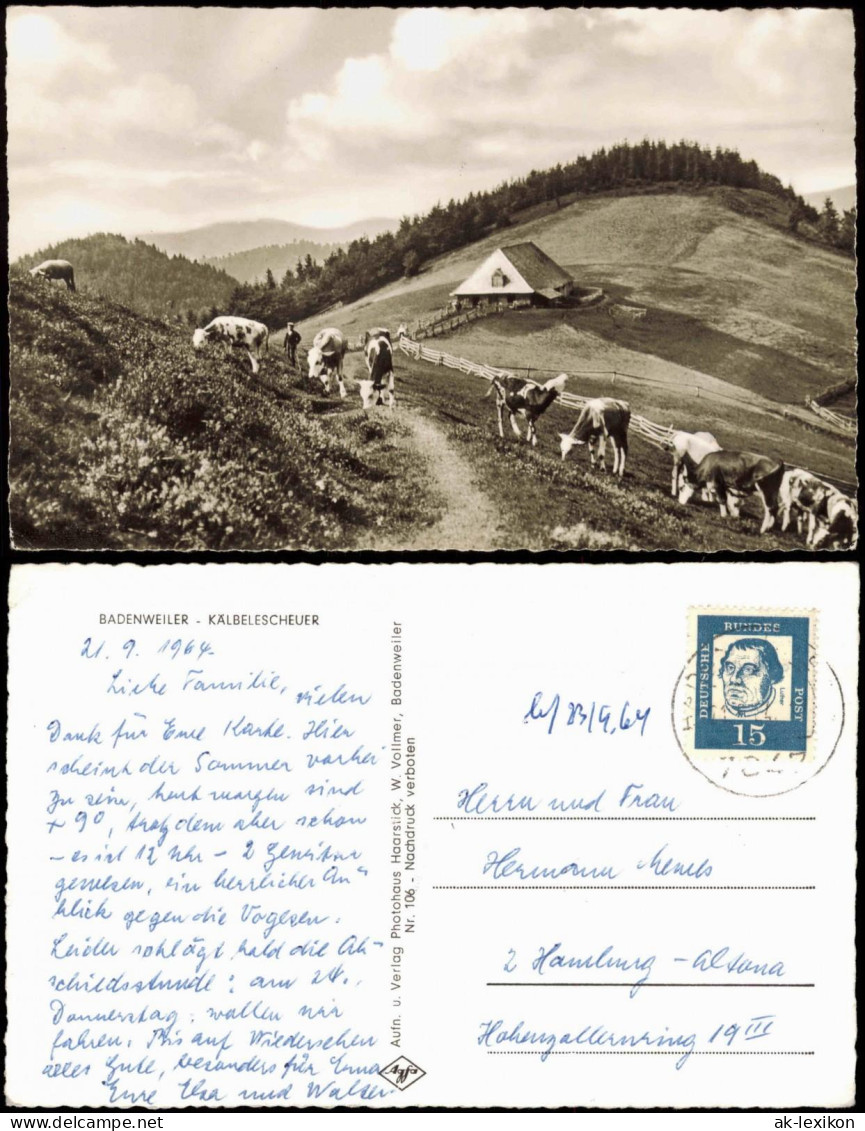 BADENWEILER - KÄLBELESCHEUER
21. 9. 1964.
Liebe Familie, vielen
Dank für Eure Karte. Hier
scheint der Sommer vorbei
zu sein, heut morgen sind
+ 9°, trotzdem aber schon
- es ist 12 Uhr - 2 Gewitter
gewesen, ein herrlicher An-
blick gegen die Vogesen.
Leider schlägt bald die Ab-
schiedsstunde: am 24.,
Donnerstag, wollen wir
fahren. Bis auf Wiedersehen
alles Gute, besonders für Erna
Eure Elsa und Walter.
Aufn. u. Verlag Photohaus Haarstick, W. Vollmer, Badenweiler
Nr. 106 - Nachdruck verboten
Agfa
DEUTSCHE BUNDES POST
Luther
15
23/9.64
Herrn und Frau
Hermann
2 Hamburg - Altona
Hohenzollernring 19 III
ak-lexikon